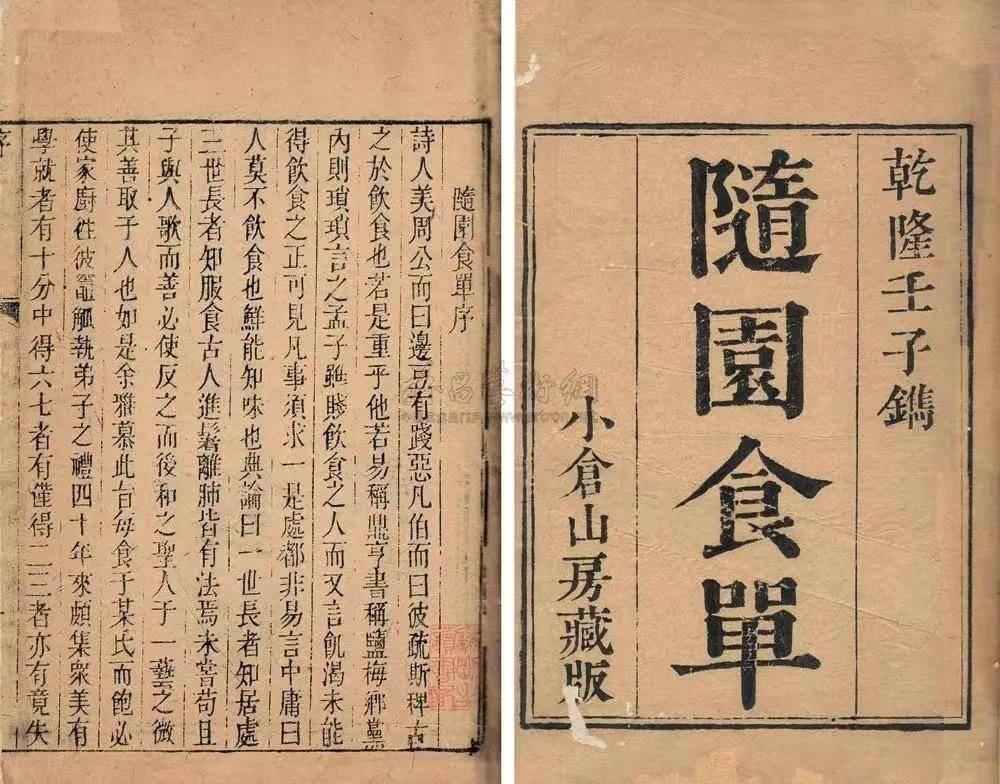 乾隆壬子鐫
隨園食單
小倉山房藏版
隨園食單序
詩人美周公而曰籩豆有踐惡凡伯而曰彼疏斯稗古
之於飲食也若是重乎他若易稱鼎亨書稱鹽梅鄉黨
內則瑣瑣言之孟子雖賤飲食之人而又言飢渴未能
得飲食之正可見凡事須求一是處都非易言中庸曰
人莫不飲食也鮮能知味也典論曰一世長者知居處
三世長者知服食古人進鬐離肺皆有法焉未嘗苟且
子與人歌而善必使反之而後和之聖人于一藝之微
其善取于人也如是余雅慕此旨每食于某氏而飽必
使家廚往彼竈觚執弟子之禮四十年來頗集衆美有
學就者有十分中得六七者有僅得二三者亦有竟失
序